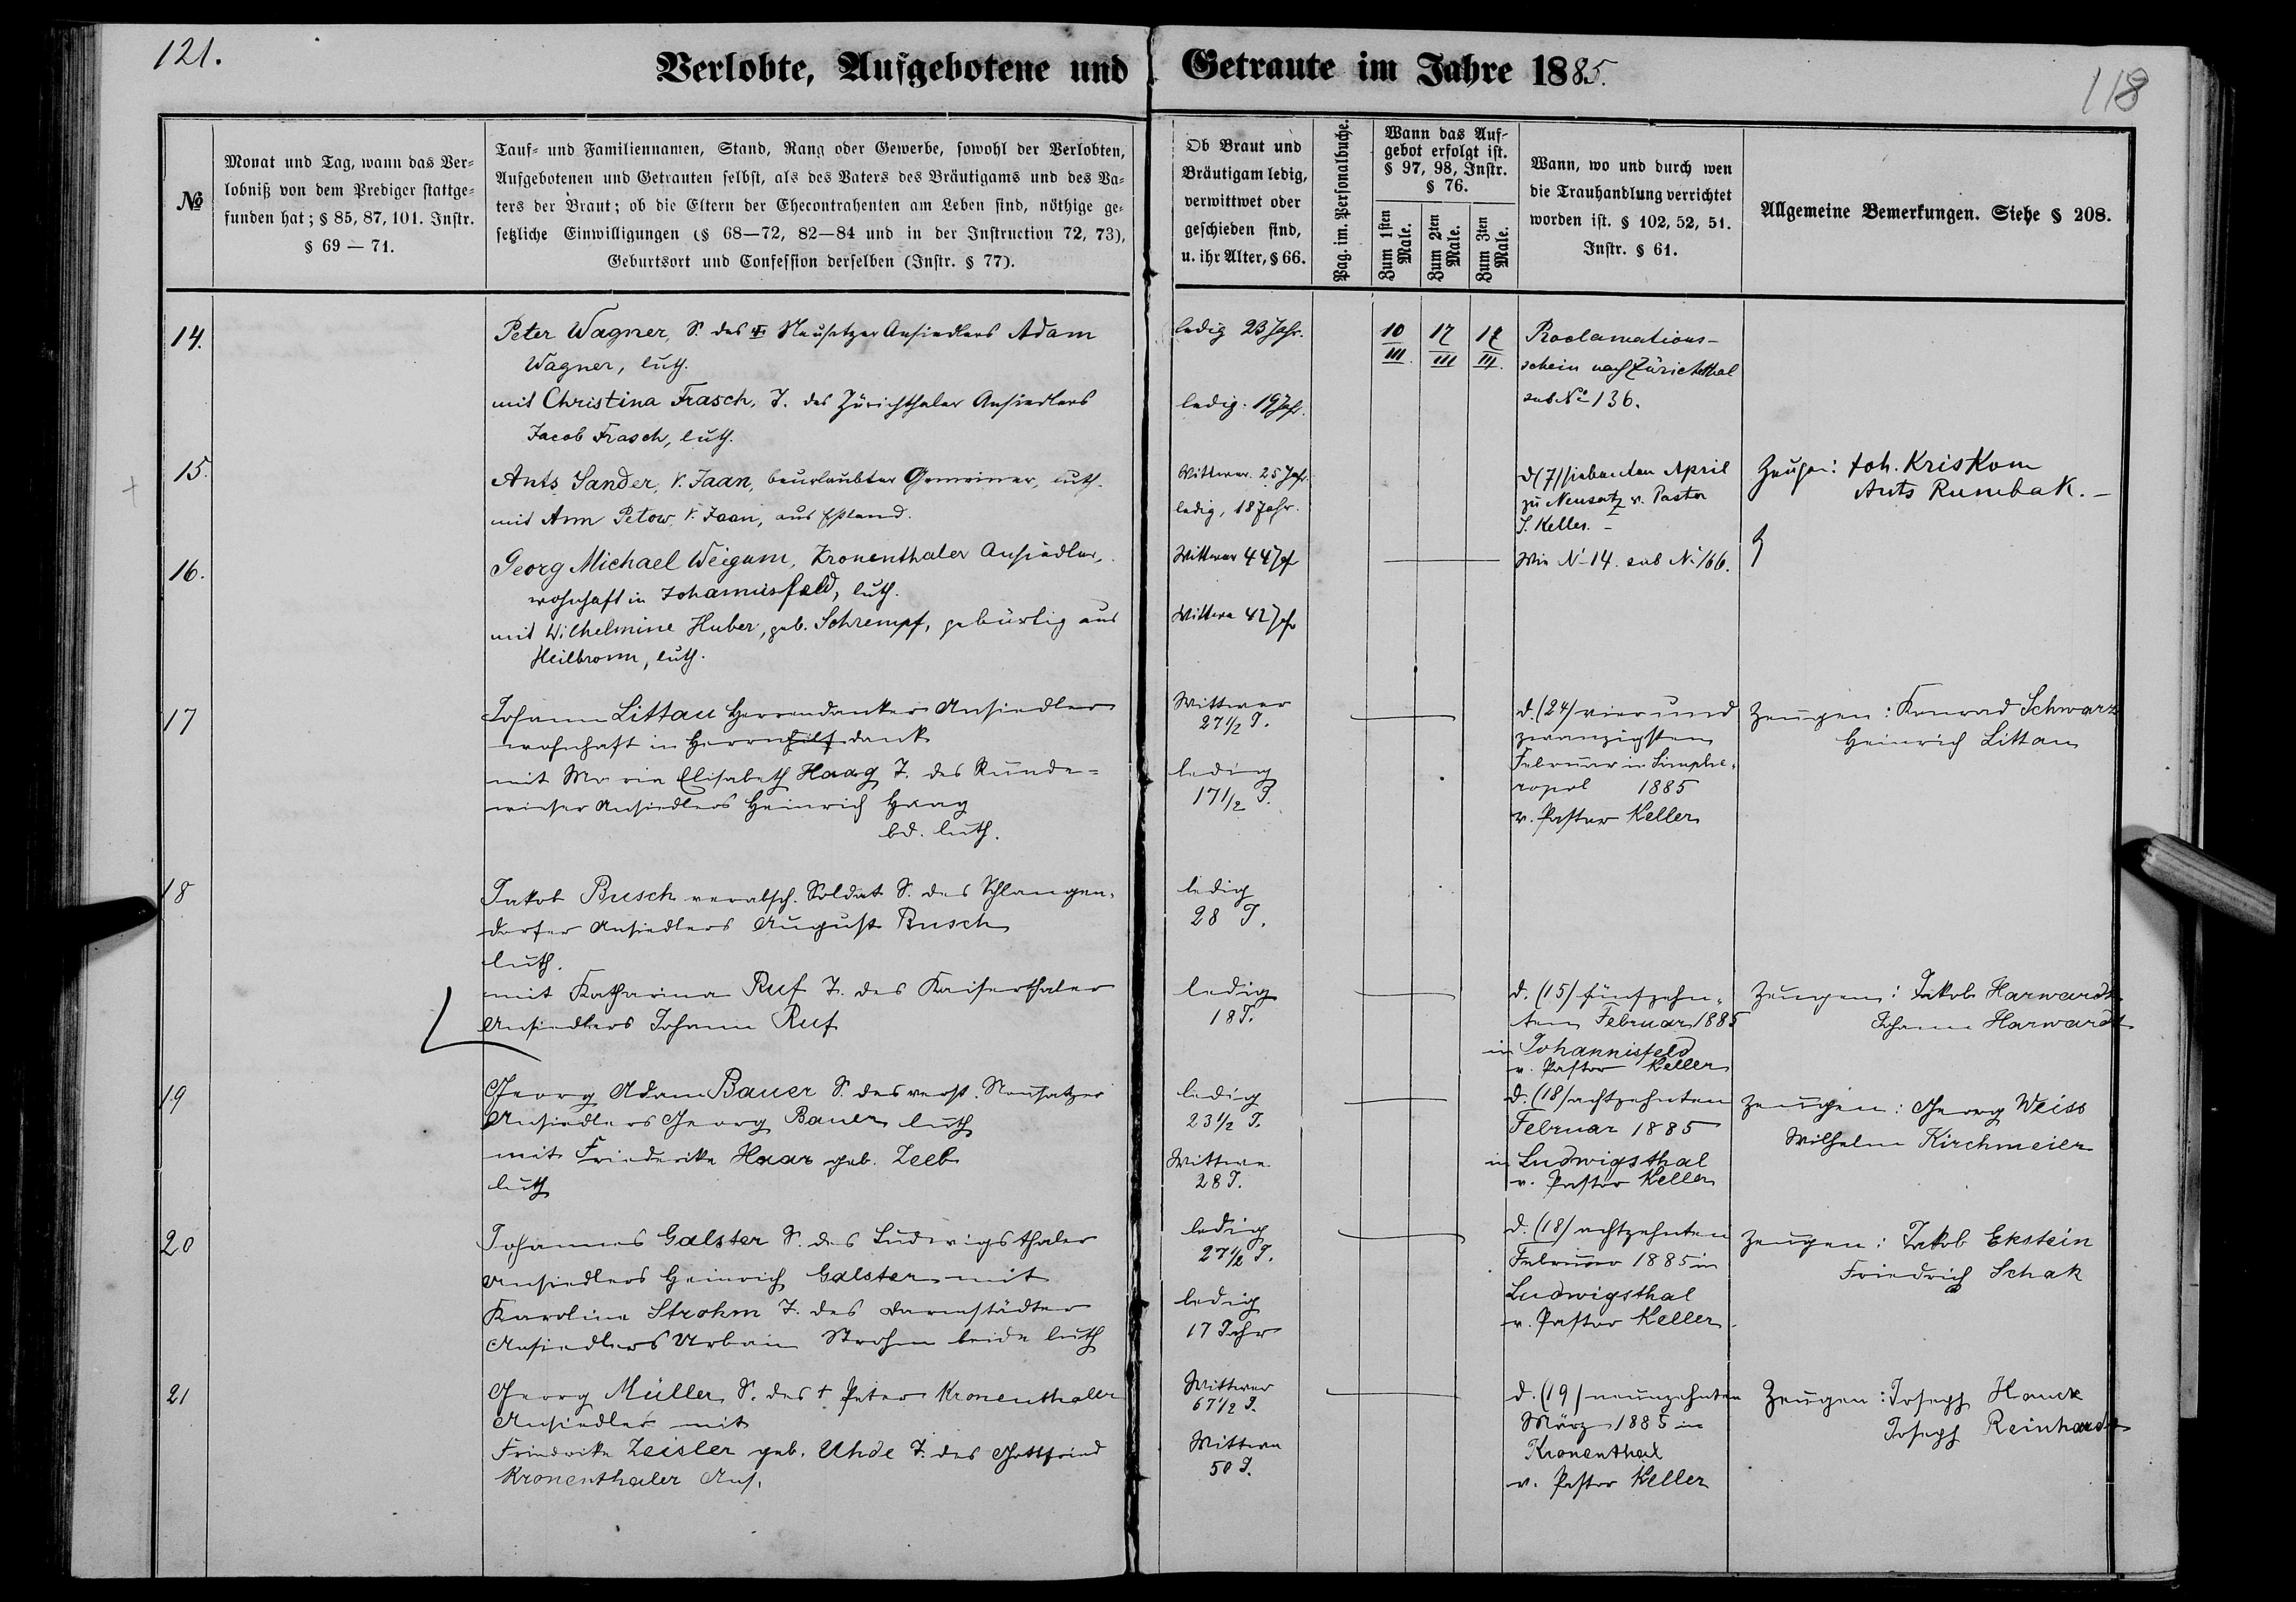 121.
118
Verlobte, Aufgebotene und Getraute im Jahre 1885.
№
Monat und Tag, wann das Ver-
lobniß von dem Prediger stattge-
funden hat; § 85, 87, 101. Instr.
§ 69 — 71.
Tauf- und Familiennamen, Stand, Rang oder Gewerbe, sowohl der Verlobten,
Aufgebotenen und Getrauten selbst, als des Vaters des Bräutigams und des Va-
ters der Braut; ob die Eltern der Ehecontrahenten am Leben sind, nöthige ge-
setzliche Einwilligungen (§ 68—72, 82—84 und in der Instruction 72, 73),
Geburtsort und Confession derselben (Instr. § 77).
Ob Braut und
Bräutigam ledig,
verwittwet oder
geschieden sind,
u. ihr Alter, § 66.
Pag. im. Personalbuche.
Wann das Auf-
gebot erfolgt ist.
§ 97, 98, Instr.
§ 76.
Zum 1sten Male.
Zum 2ten Male.
Zum 3ten Male.
Wann, wo und durch wen
die Trauhandlung verrichtet
worden ist. § 102, 52, 51.
Instr. § 61.
Allgemeine Bemerkungen. Siehe § 208.
14.
Peter Wagner, S. des Neusatzer Ansiedlers Adam
Wagner, luth.
mit Christina Frasch, T. des Zürichthaler Ansiedlers
Jacob Frasch, luth.
ledig 23 Jahr.
ledig. 19 Jahr.
10/III. 17/III 17/III.
Proclamations-
schein nach Zürichthal
sub No 136.
15.
Ants Sander, V. Jaan, beurlaubter Gemeiner, luth.
mit Ann Petow, V. Jaan, aus Estland.
Wittwer. 25 Jahr.
ledig, 18 Jahr.
d. (7) siebenten April
zu Neusatz v. Pastor
J. Keller. –
Zeugen: Joh. Kriskom
Ants Rumbak. –
16.
Georg Michael Weigum, Kronenthaler Ansiedler,
wohnhaft in Johannisfeld, luth.
mit Wilhelmine Huber, geb. Schrempf, gebürtig aus
Heilbronn, luth.
Wittwer 44 Jahr
Wittwe 42 Jahr
Wie N. 14. sub N. 166.
17
Johann Littau Herrendanker Ansiedler
wohnhaft in Herrnhilfdank
mit Maria Elisabeth Haag T. des Runde-
wieser Ansiedlers Heinrich Haag
bd. luth.
Wittwer
27 1/2 J.
ledig
17 1/2 J.
d. (24) vierund
zwanzigsten
Februar in Simphe-
ropol 1885
v. Pastor Keller
Zeugen: Konrad Schwarz
Heinrich Littau
18
Jakob Busch verabsch. Soldat S. des Schlangen-
dorfer Ansiedlers August Busch
luth.
mit Katharina Ruf T. des Kaiserthaler
Ansiedlers Johann Ruf
ledig
28 J.
ledig
18 J.
d. (15) fünfzehn-
ten Februar 1885
in Johannisfeld
v. Pastor Keller
Zeugen: Jakob Harwardt
Johann Harwardt
19
Georg Adam Bauer S. des verst. Neusatzer
Ansiedlers Georg Bauer luth
mit Friederike Haar geb. Zeeb
luth
ledig
23 1/2 J.
Wittwe
28 J.
d. (18) achtzehnten
Februar 1885
in Ludwigsthal
v. Pastor Keller
Zeugen: Georg Weiss
Wilhelm Kirchmeier
20
Johannes Galster S. des Ludwigsthaler
Ansiedlers Heinrich Galster mit
Karoline Strohm T. des Darmstädter
Ansiedlers Urban Strohm beide luth
ledig
27 1/2 J.
ledig
17 Jahr
d. (18) achtzehnten
Februar 1885 in
Ludwigsthal
v. Pastor Keller.
Zeugen: Jakob Ekstein
Friedrich Schak
21
Georg Müller S. des † Peter Kronenthaller
Ansiedler mit
Friedrike Zeisler geb. Uhde T. des Gottfried
Kronenthaler Ans.
Wittwer
67 1/2 J.
Wittwe
50 J.
d. (19) neunzehnten
März 1885 in
Kronenthal
v. Pastor Keller
Zeugen: Joseph Hauck
Joseph Reinhardt